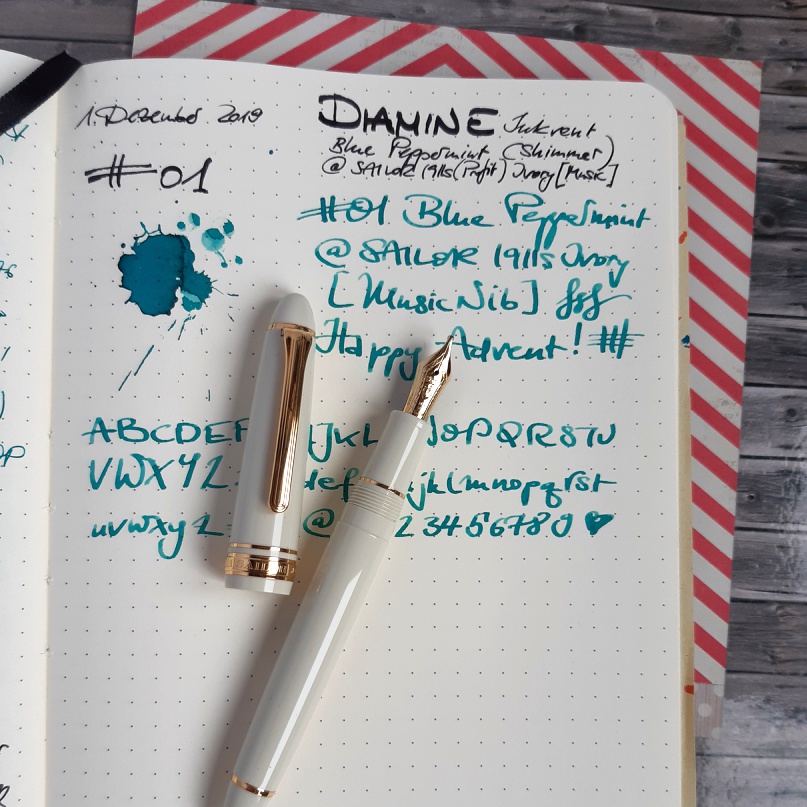 1. Dezember 2019
#01
DIAMINE Inkvent
Blue Peppermint (Shimmer)
@ SAILOR 1911s (Profit) Ivory [Music]
#01 Blue Peppermint
@ SAILOR 1911s Ivory
[Music Nib]
Happy Advent!
ABCDEF JKL NOPQRSTU
VWXYZ def ijklmnopqrst
uvwxyz @ 234567890 ♥